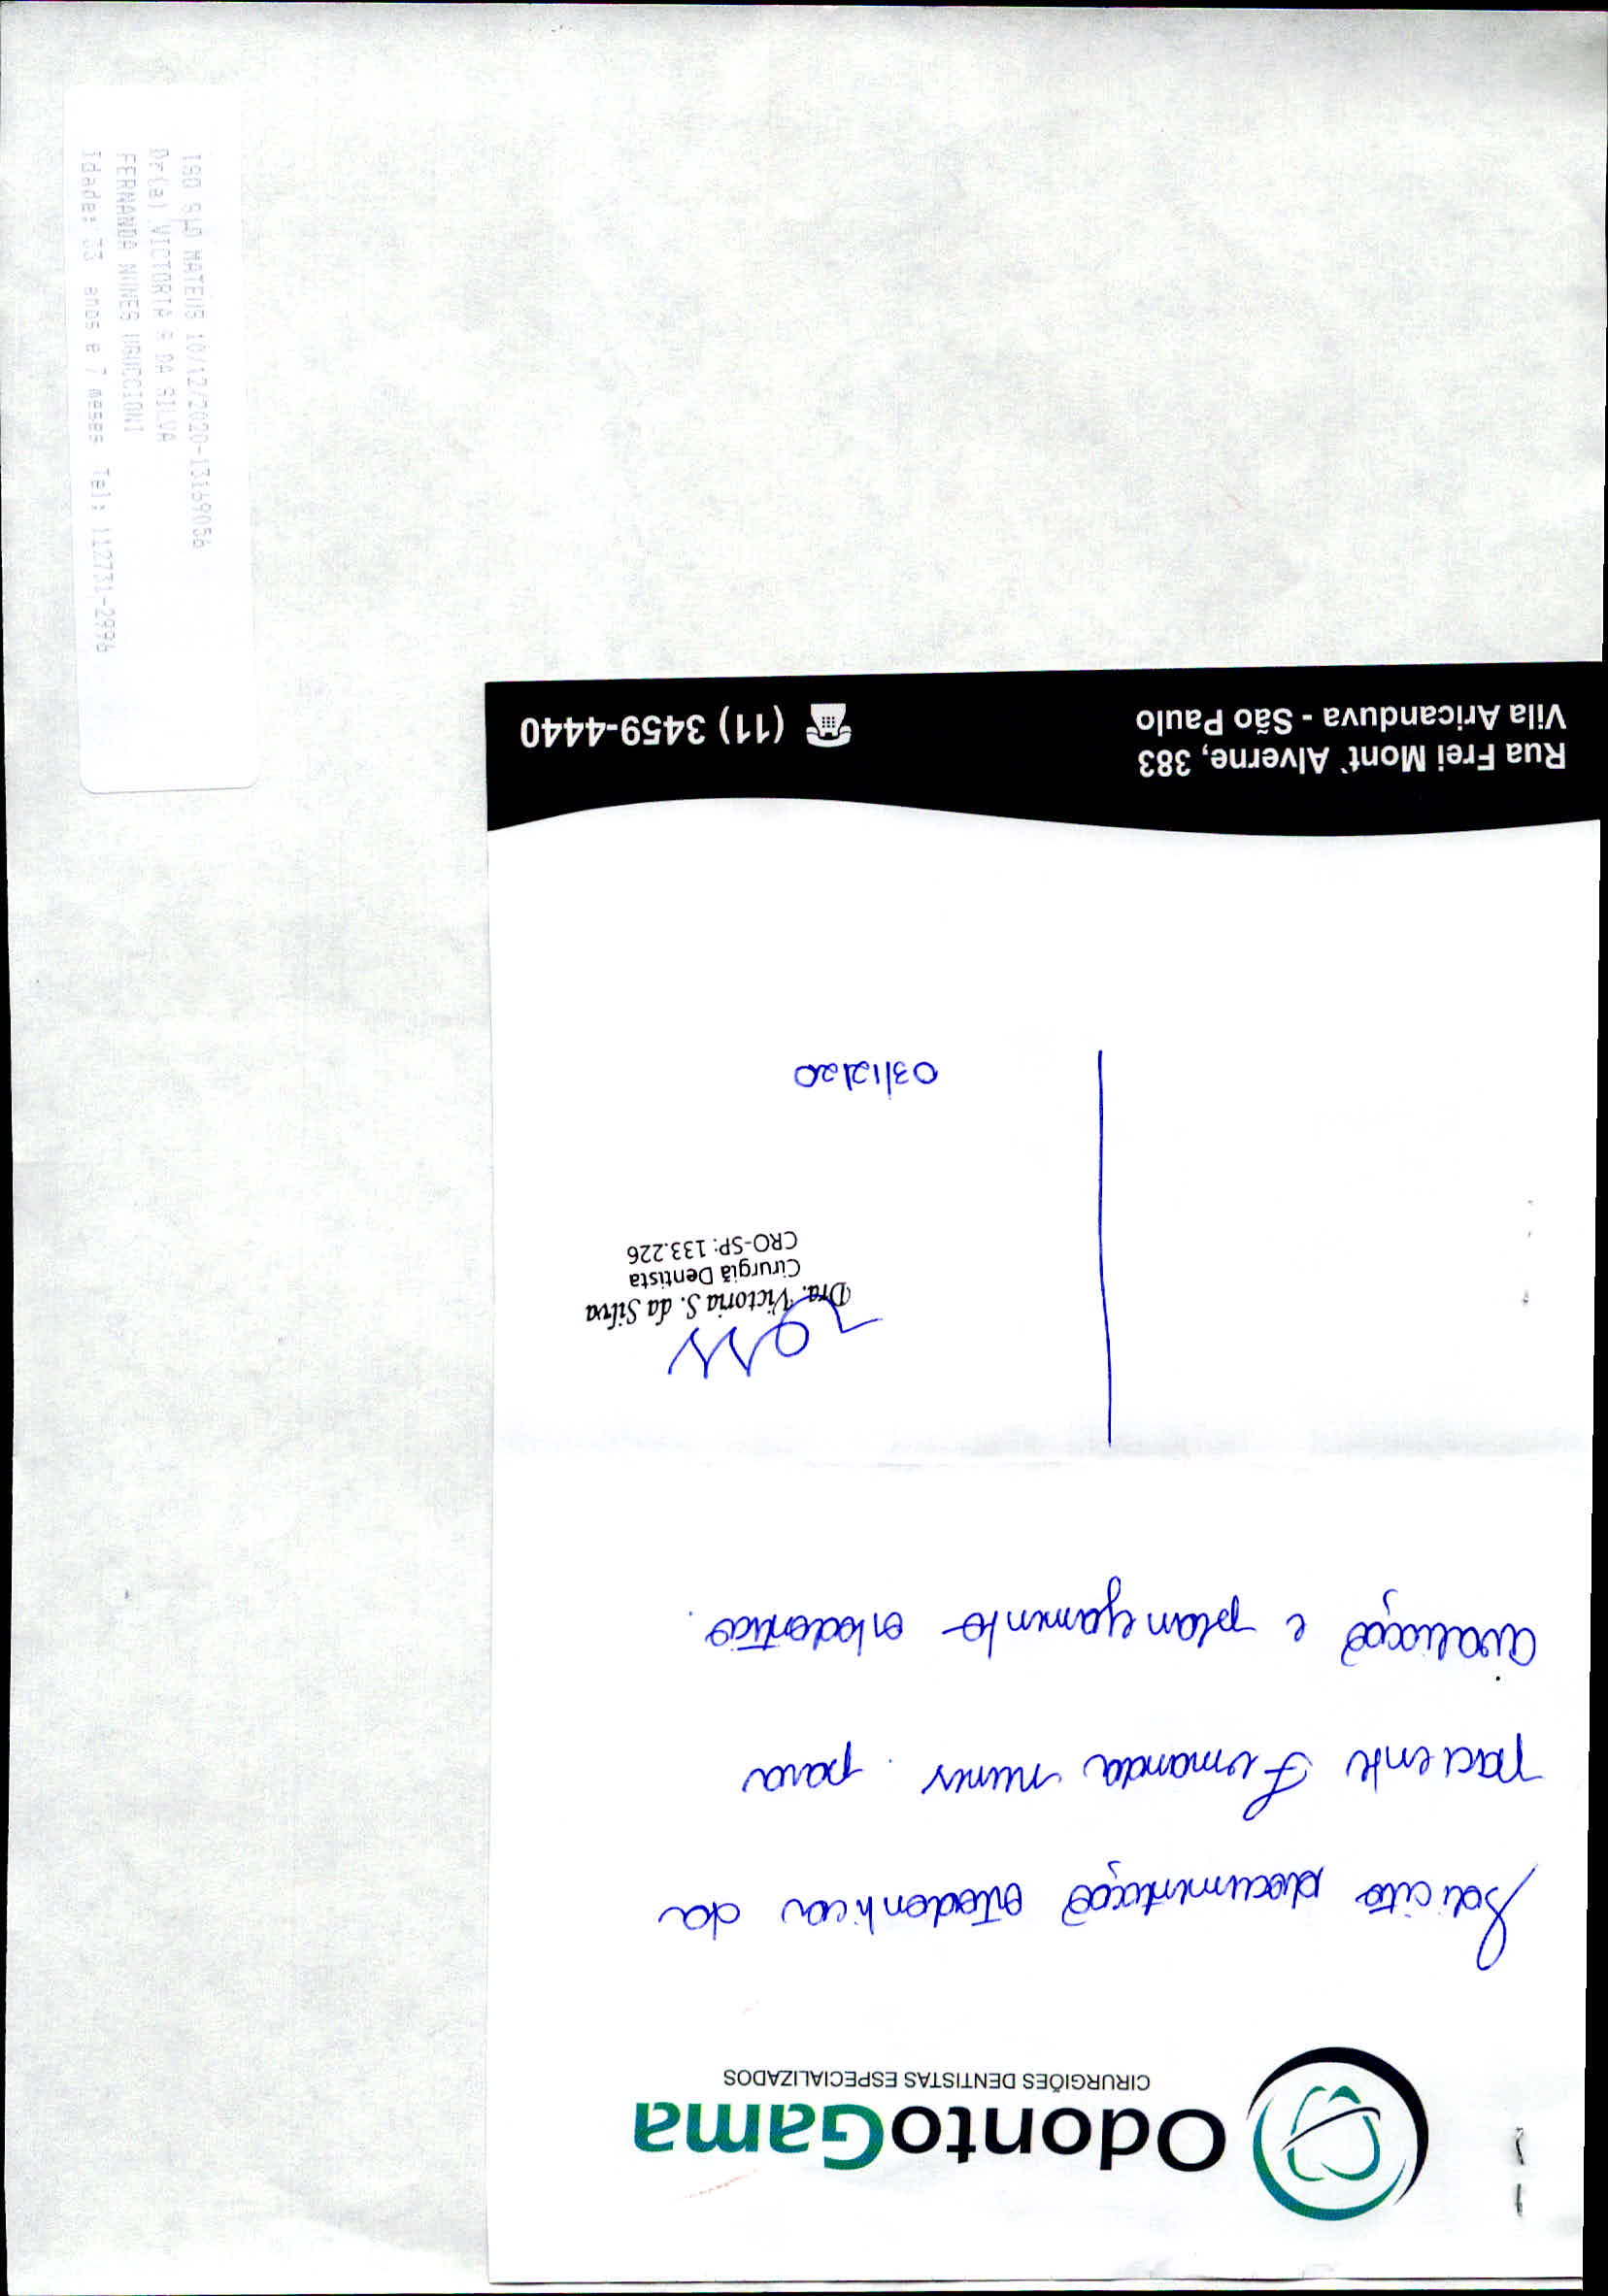 OdontoGama
CIRURGIÕES DENTISTAS ESPECIALIZADOS
Solicito documentação ortodontica da
paciente Fernanda nunes para
avaliação e planejamento ortodontico.
Dra. Victoria S. da Silva
Cirurgiã Dentista
CRO-SP: 133.226
03/12/20
Rua Frei Mont` Alverne, 383
Vila Aricanduva - São Paulo
(11) 3459-4440
150 SÃO MATEUS 10/12/2020-13169056
Dr(a) VICTORIA S DA SILVA
FERNANDA NUNES UGUCCIONI
Idade: 33 anos e 7 meses Tel: 112731-2996